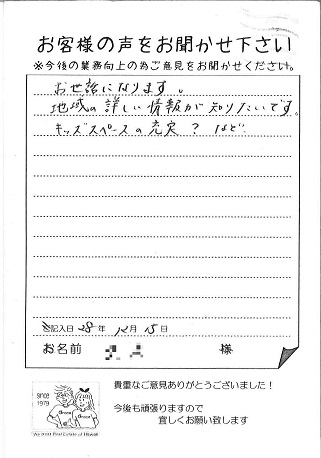 お客様の声をお聞かせ下さい
※今後の業務向上の為ご意見をお聞かせください。
お世話になります。
地域の詳しい情報が知りたいです。
キッズスペースの充実?など
記入日 28年 12月 15日
お名前 様
since
1979
貴重なご意見ありがとうございました!
今後も頑張りますので
宜しくお願い致します